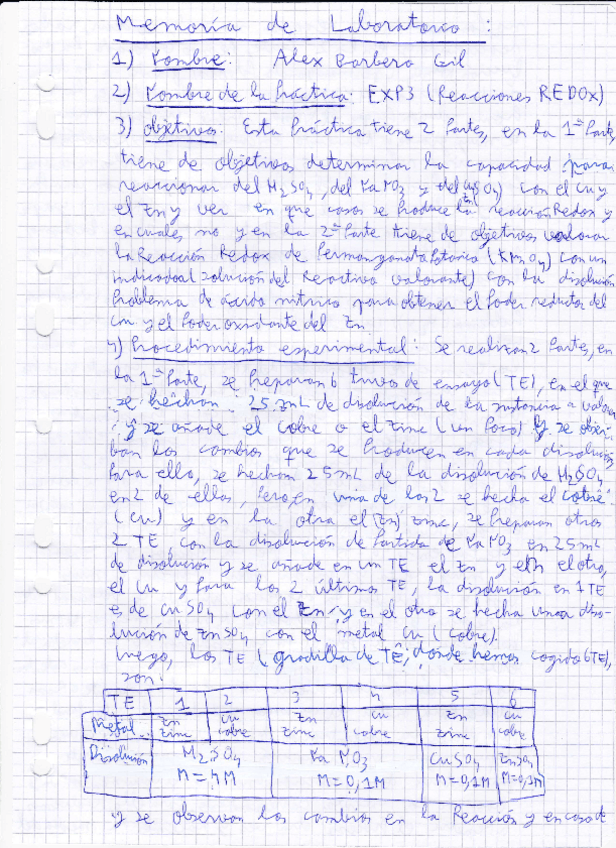 Memoria de Laboratorio :
1) Nombre: Alex Barbero Gil
2) Nombre de la Práctica: EXP3 (Reacciones REDOX)
3) Objetivos: Esta Práctica tiene 2 Partes, en la 1ª Parte,
tiene de objetivos determinar la capacidad para
reaccionar del H2SO4, del NaNO3 y del CuSO4 con el Cu y
el Zn y ver en que casos se Produce la reacción Redox y
en cuales no y en la 2ª Parte tiene de objetivos valorar
la Reacción Redox de Permanganato Potásico (KMnO4) con un
indicador (solución del Reactivo valorante) con la disolución
Problema de ácido nítrico para obtener el Poder reductor del
Cu y el Poder oxidante del Zn
4) Procedimiento experimental: Se realizan 2 Partes, en
la 1ª Parte, se Preparan 6 tubos de ensayo (TE), en el que
se hechan 25 mL de disolución de la sustancia a valorar
y se añade el cobre o el zinc (un Poco) y se obser-
ban los cambios que se Producen en cada disolución
Para ello, se hechan 25mL de la disolución de H2SO4
en 2 de ellos, Pero, en una de los 2 se hecha el cobre
(Cu) y en la otra el Zn, zinc, se Preparan otros
2 TE con la disolución de Partida de NaNO3 en 25mL
de disolución y se añade en un TE el Zn y en el otro,
el Cu y Para los 2 últimos TE, la disolución en 1 TE
es de CuSO4 con el Zn y en el otro se hecha una diso-
lución de ZnSO4 con el metal Cu (cobre).
Luego, los TE (gradilla de TE, donde hemos cogido 6TE),
son:
TE 1 2 3 4 5 6
Metal Zn zinc Cu cobre Zn zinc Cu cobre Zn zinc Cu cobre
Disolución H2SO4 NaNO3 CuSO4 ZnSO4
M=4M M=0,1M M=0,1M M=0,1M
y se observan los cambios en la Reacción y en caso de